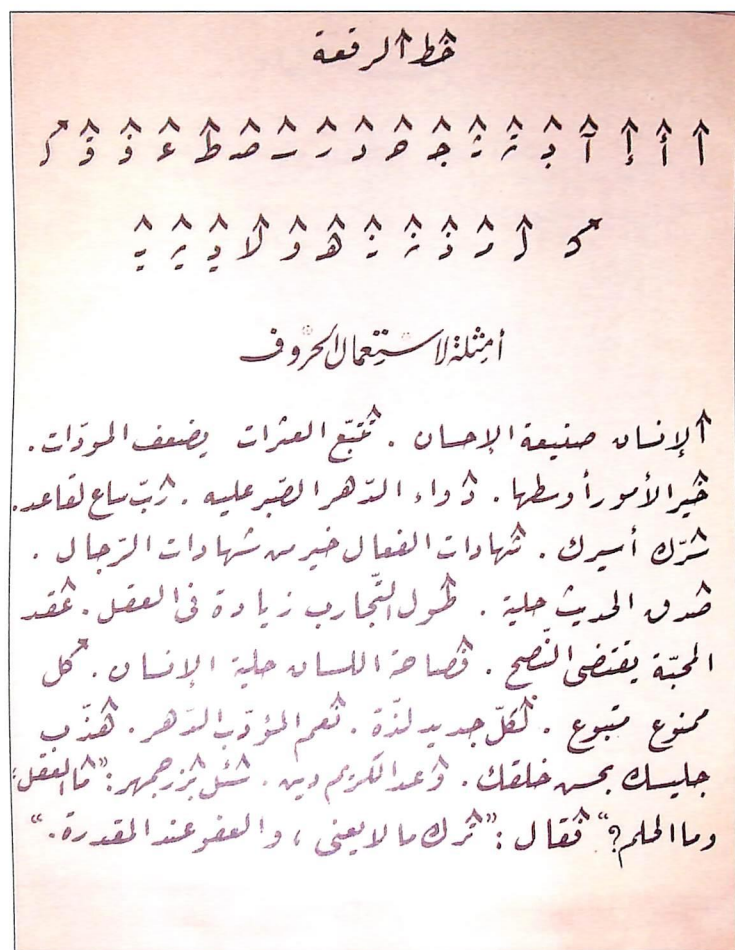 خط الرقعة
ا أ إ آ بـ تـ ثـ جـ حـ د ر سـ صـ ط عـ فـ قـ كـ
كـ لـ مـ ذ نـ نـ هـ و لا يـ يـ يـ
أمثلة لاستعمال الحروف
الإنسان صنيعة الإحسان . تتبّع العثرات يضعف المودّات .
خير الأمور أوسطها . دواء الدّهر الصّبر عليه . ربّ ساع لقاعد .
سّرك أسيرك . شهادات الفعال خير من شهادات الرّجال .
صدق الحديث حلية . طول التّجارب زيادة فى العقل . عقد
المحبّة يقتضى النّصح . فصاحة اللسان حلية الإنسان . كل
ممنوع متبوع . لكلّ جديد لذّة . نعم المؤدّب الدّهر . هذّب
جليسك بحسن خلقك . وعد الكريم دين . سئل بزرجمهر : " ما العقل ؛
وما الحلم ؟ " فقال : " ترك ما لا يعنى ، والعفو عند المقدرة . "